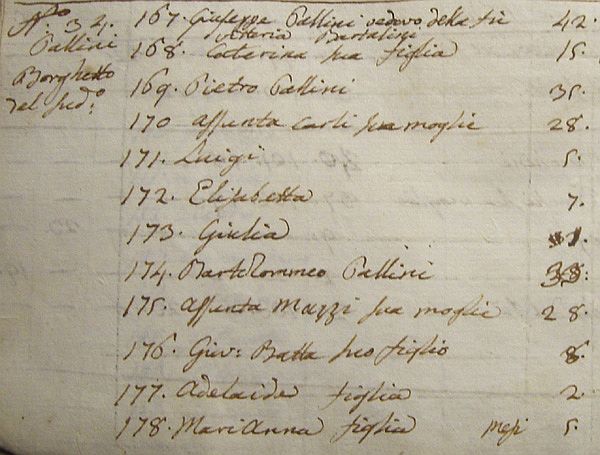 N.ro 34.
Pallini
Borghetto
del sud.o
167. Giuseppe Pallini vedovo della fù 42.
Atteria Bartalini
168. Caterina sua figlia 15.
169. Pietro Pallini 35.
170 Assunta Carli sua moglie 28.
171. Luigi 5.
172. Elisabetta 7.
173. Giulia 1.
174. Bartolommeo Pallini 38:
175. Assunta Mazzi sua moglie 28.
176. Giov: Batta suo figlio 8.
177. Adelaide figlia 2.
178. MariAnna figlia mesi 5.